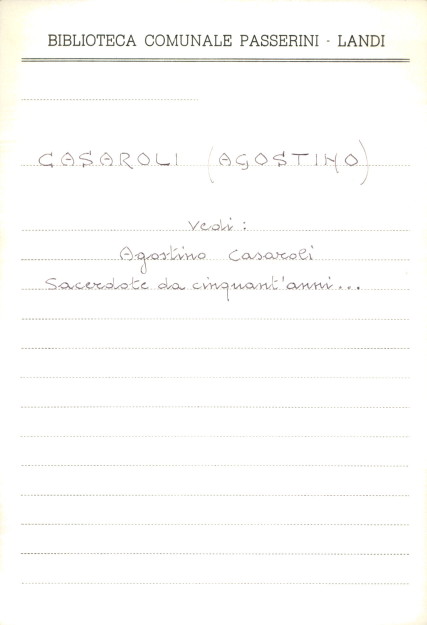 BIBLIOTECA COMUNALE PASSERINI - LANDI
CASAROLI (AGOSTINO)
Vedi:
Agostino Casaroli
Sacerdote da cinquant'anni...